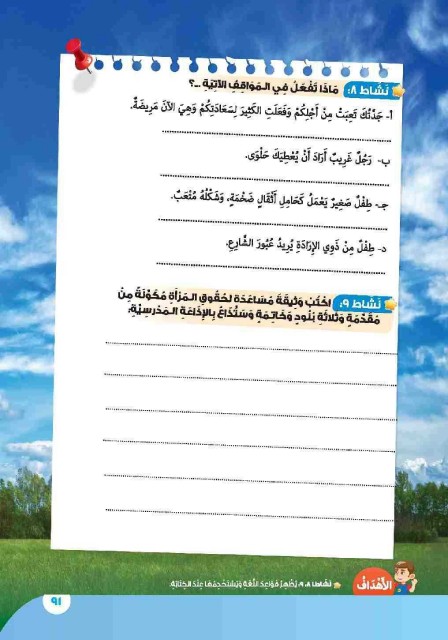 نَشاط ٨: مَاذَا تَفْعَلُ فِي الـمَوَاقِفِ الآتِيَةِ ..؟
أ- جَدَّتُكَ تَعِبَتْ مِنْ أَجْلِكُمْ وَفَعَلَتِ الكَثِيرَ لِسَعَادَتِكُمْ وَهِيَ الآنَ مَرِيضَةٌ.
ب- رَجُلٌ غَرِيبٌ أَرَادَ أَنْ يُعْطِيَكَ حَلْوَى.
جـ- طِفْلٌ صَغِيرٌ يَعْمَلُ كَحَامِلِ أَثْقَالٍ ضَخْمَةٍ، وَشَكْلُهُ مُتْعَبٌ.
د- طِفْلٌ مِنْ ذَوِي الإِرَادَةِ يُرِيدُ عُبُورَ الشَّارِعِ.
نَشاط ٩: اكْتُبْ وَثِيقَةَ مُسَاعَدَةٍ لِحُقُوقِ الـمَرْأَةِ مُكَوَّنَةً مِنْ
مُقَدِّمَةٍ وَثَلَاثَةِ بُنُودٍ وَخَاتِمَةٍ وَسَتُذَاعُ بِالإِذَاعَةِ الـمَدْرَسِيَّةِ:
الأَهْدَافُ
نَشاط ٨، ٩: يُظْهِرُ قَوَاعِدَ اللُّغَةِ وَيَسْتَخْدِمُهَا عِنْدَ الكِتَابَةِ.
٩١